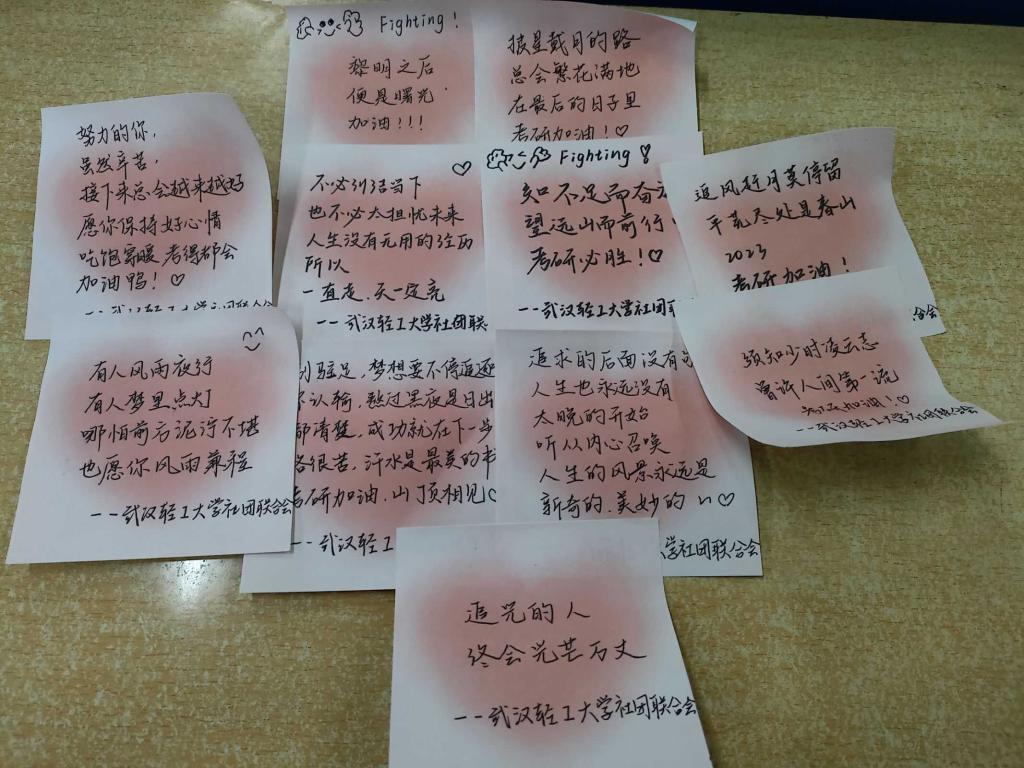 Fighting!
黎明之后
便是曙光
加油!!!
披星戴月的路
总会繁花满地
在最后的日子里
考研加油!♡
努力的你,
虽然辛苦,
接下来总会越来越好
愿你保持好心情
吃饱穿暖 考得都会
加油鸭!♡
不必纠结当下
也不必太担忧未来
人生没有无用的经历
所以
一直走、天一定亮
--武汉轻工大学社团联
Fighting!
知不足而奋
望远山而前行
考研必胜!♡
--武汉轻工大学社团
追风赶月莫停留
平芜尽处是春山
2023
考研加油!
合会
有人风雨夜行
有人梦里点灯
哪怕前后泥泞不堪
也愿你风雨兼程
--武汉轻工大学社团联合会
驻足,梦想要不停追逐
认输,熬过黑夜是日出
清楚,成功就在下一步
很苦,汗水是最美的书
考研加油,山顶相见♡
--武汉轻工
追求的后面没有
人生也永远没有
太晚的开始
听从内心召唤
人生的风景永远是
新奇的、美妙的~♡
学社团联合会
须知少时凌云志
曾许人间第一流
考研加油!♡
--武汉轻工大学社团联合会
追光的人
终会光芒万丈
--武汉轻工大学社团联合会